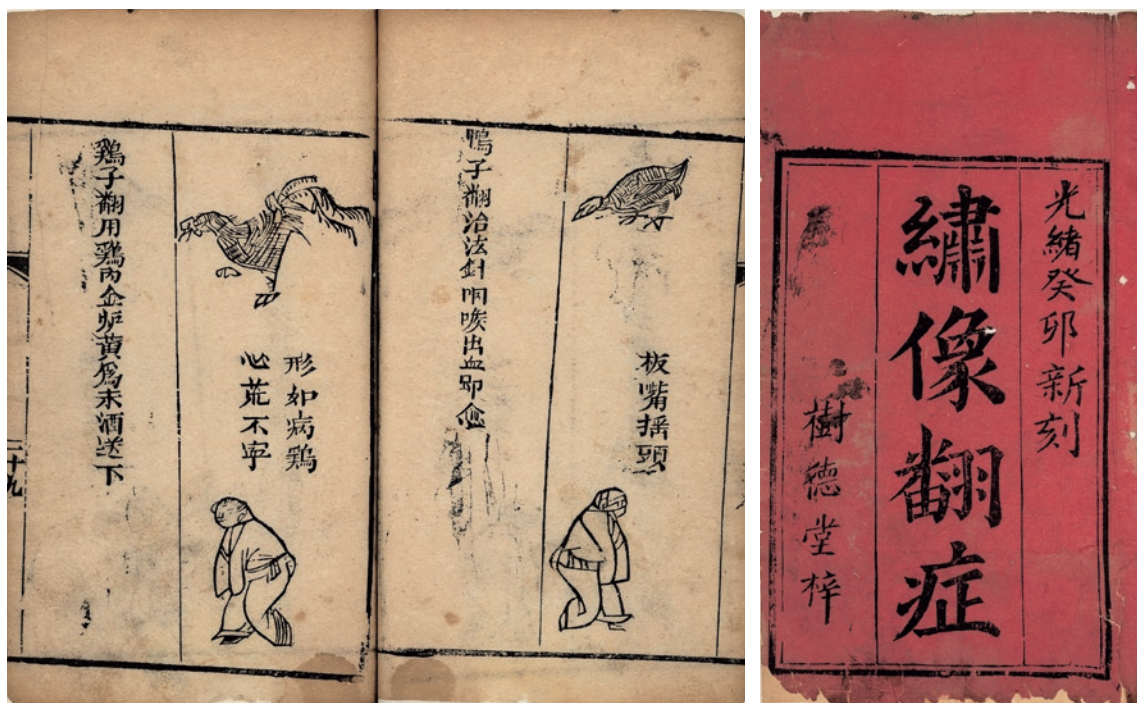 光緒癸卯新刻
繡像翻症
樹德堂梓
板嘴揺頭
鴨子翻治法針咽喉出血即愈
形如病鷄
心荒不寧
鷄子翻用鷄內金炉黃爲末酒送下
二十九